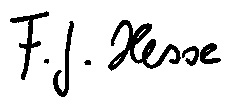 F. J. Hesse